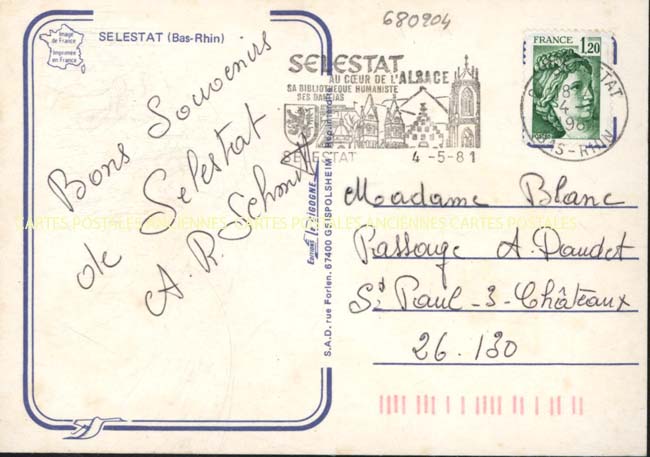 680904
Image
de France
Imprimée
en France
SELESTAT (Bas-Rhin)
Bons Souvenirs
de Selestat
A. R. Schmitt
SELESTAT
AU CŒUR DE L'ALSACE
SA BIBLIOTHEQUE HUMANISTE
SES DAHLIAS
SELESTAT
4-5-81
FRANCE
1,20
BAS-RHIN
Editions la CIGOGNE
S.A.D. rue Forlen, 67400 GEISPOLSHEIM
CARTES POSTALES ANCIENNES CARTES POSTALES ANCIENNES CARTES POSTALES
Madame Blanc
Passage A. Daudet
St Paul-3-Châteaux
26.130